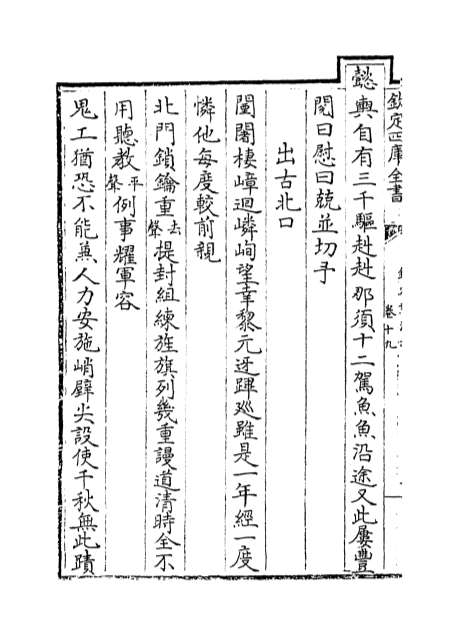 欽定四庫全書
卷十九
懿輿自有三千驅赳赳那須十二駕魚魚沿途又此屢豐
閱曰慰曰兢並切予
出古北口
闉闍棲嶂迴嶙峋望幸黎元迓蹕巡雖是一年經一度
憐他每度較前親
北門鎖鑰重去聲提封組練旌旗列幾重謾道清時全不
用聽教平聲例事耀軍容
鬼工猶恐不能兼人力安施峭壁尖設使千秋無此蹟